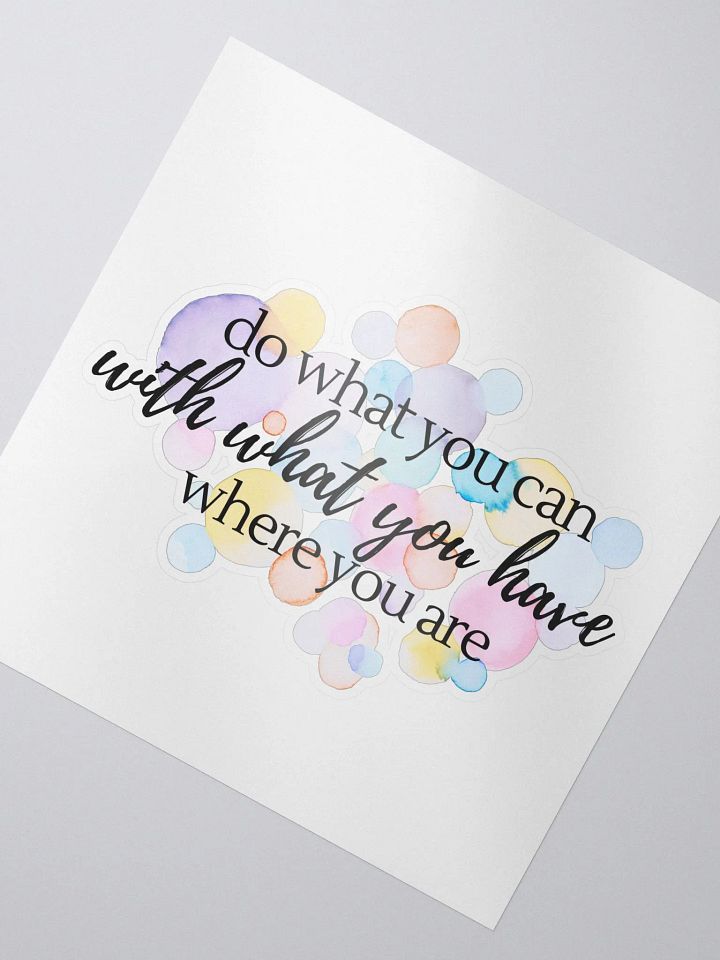 do what you can
with what you have
where you are